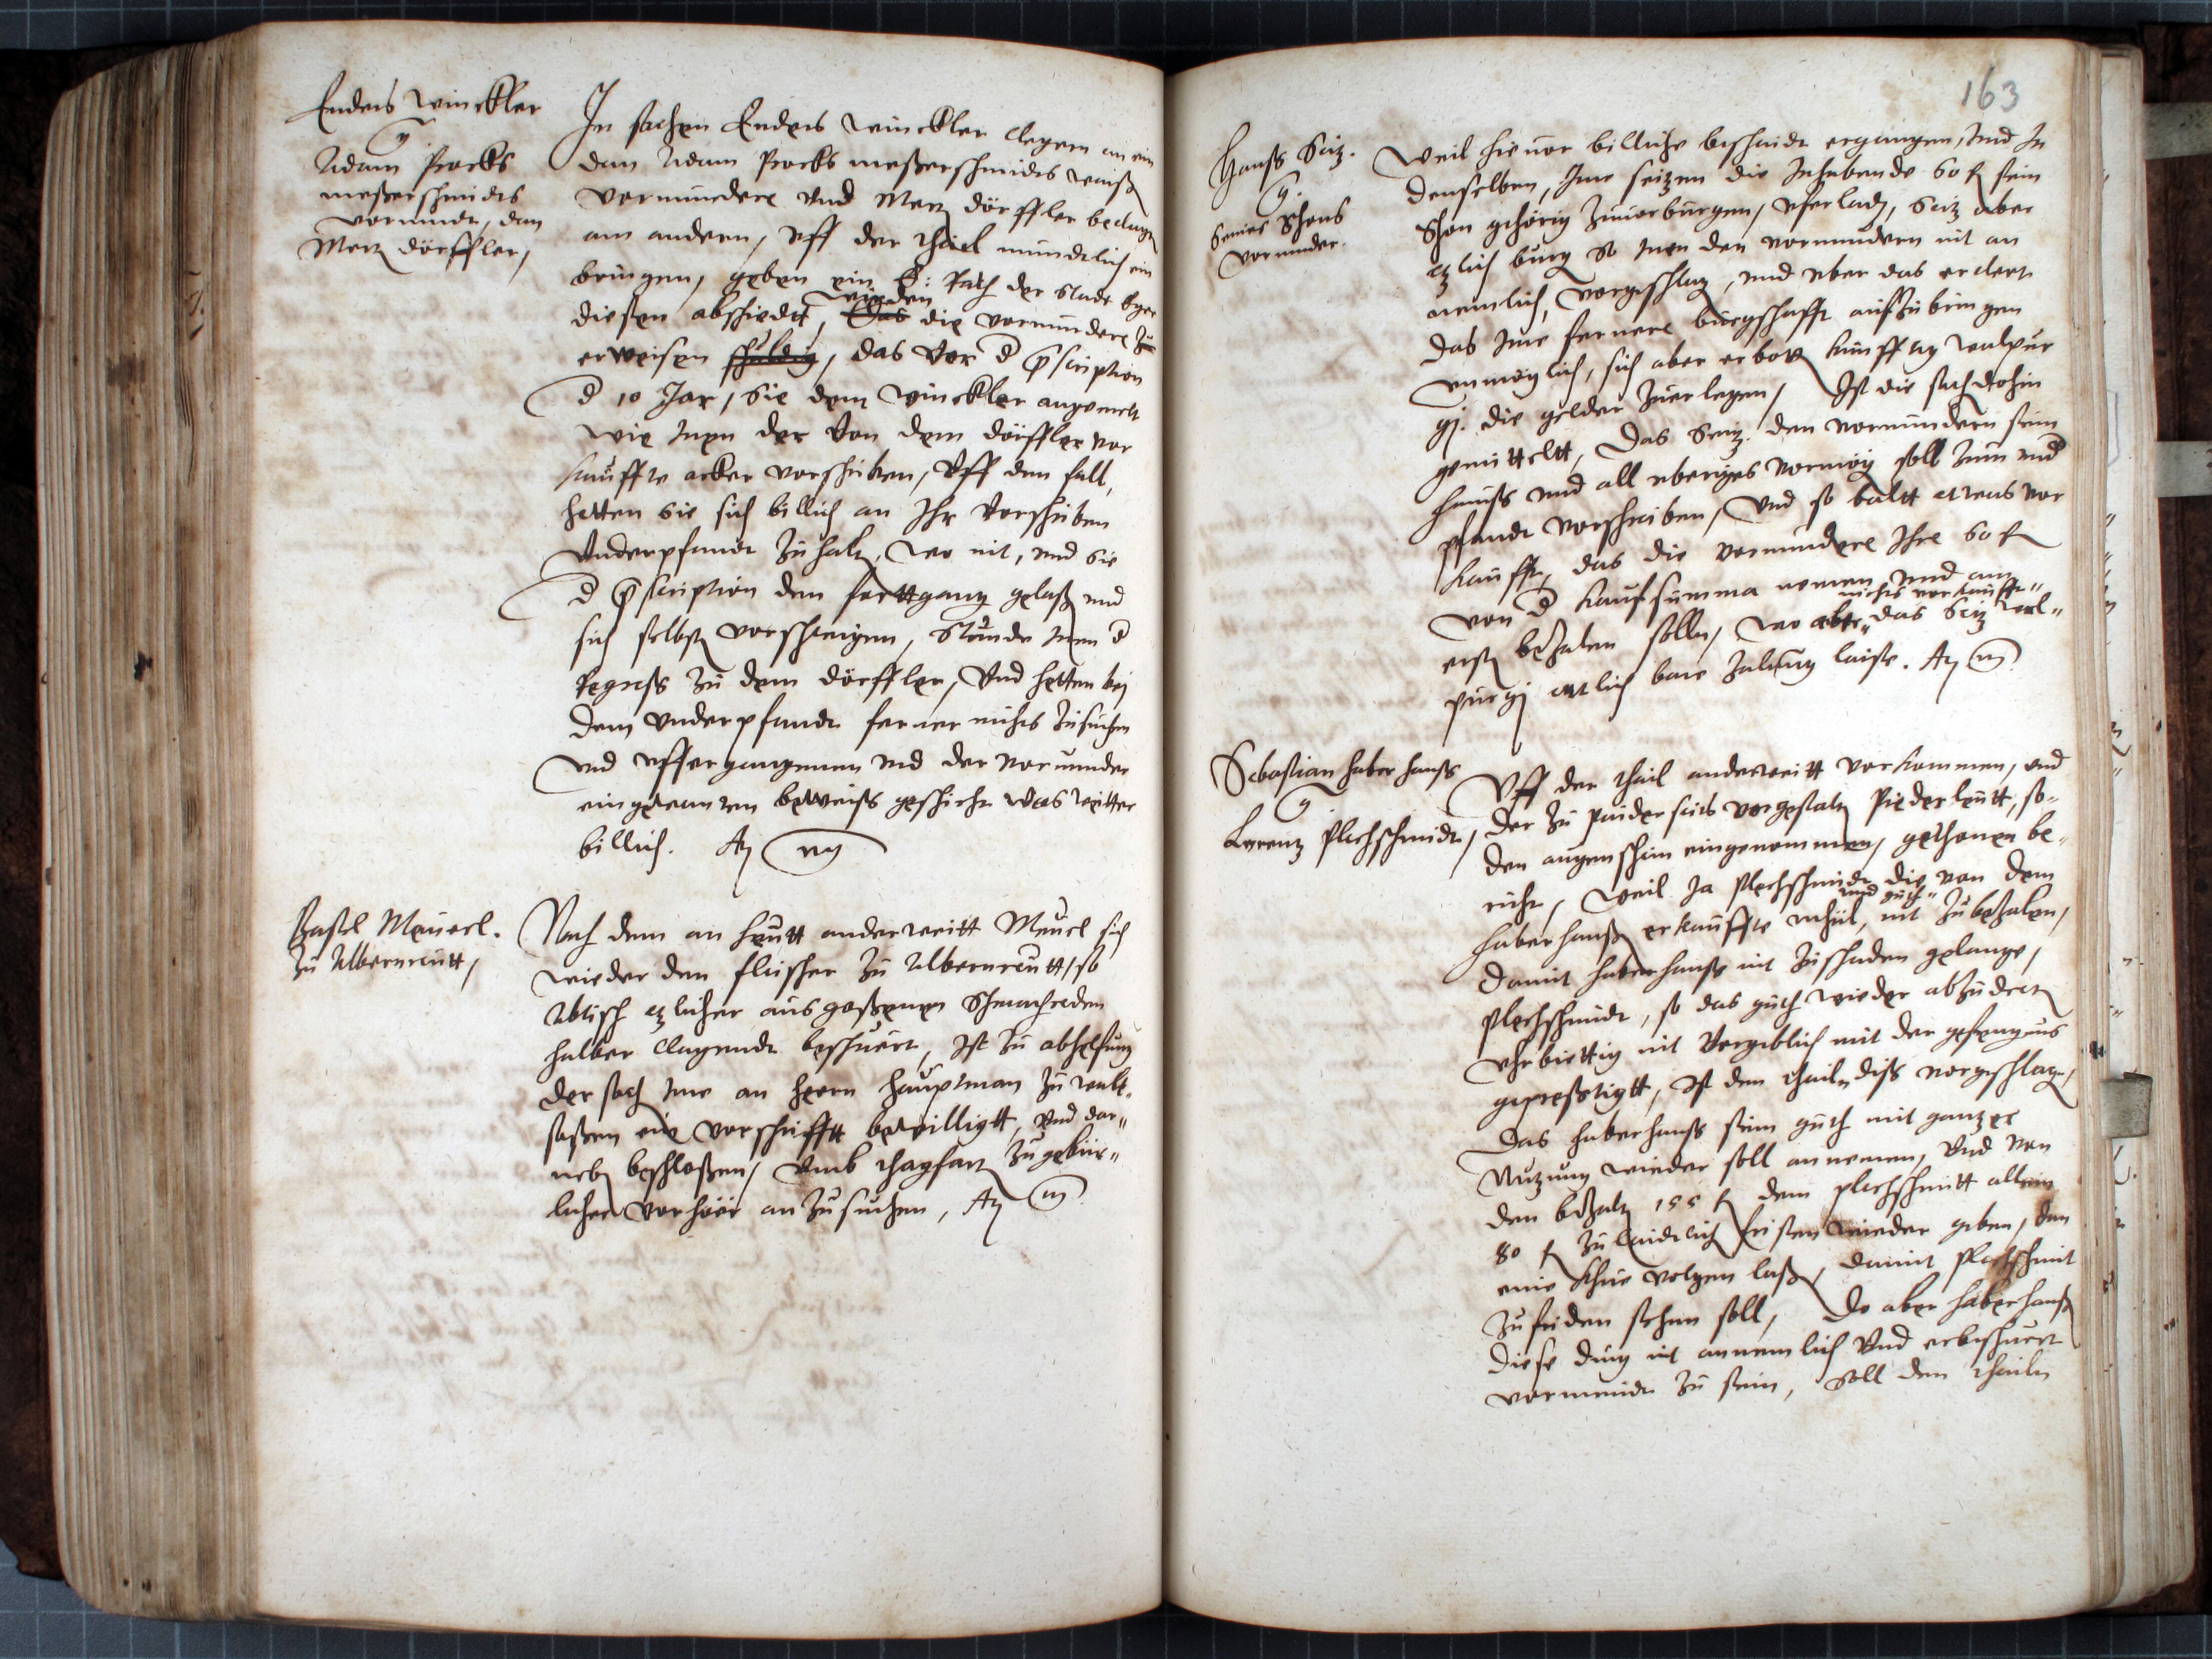 Enders Winckler
Adam Procks
meßerschmidts
vormundt, dan
Merz dörffler,
In sachen Enders Winckler Clegern an ein
dan Adam Procks meßerschmidts waiß
Vormundere Vnd Merz dörffler beclagt
am andern, Vff der thail mundtlich ein
bringen, geben ein E: Rath der Stadt Eger
diesen abschiedtt, Das die vormundere Zu
würden
erweisen schuldig, das Vor d pscription
d 10 Jar, Sie dem Winckler angemelt
wie Inen der Von dem dörffler vor
kauffte acker vorschriben, Vff den fall,
hetten sie sich billich an Ihr Vorschriben
Vnderpfandt Zu halt, wo nit, vnd Sie
d pscription den forttgang gelaß vnd
sich selbst vorschweigen, Stunde Inen d
Regress Zu dem dörffler, Vnd hetten bej
dem Vnderpfandt ferner nichts Zusuchen
vnd vffergangenen vnd der vormunder
eingewanten beweiß geschicht was weitter
billich. A
Bastel Meuerl.
Zu Albernreutt,
Nach dem an heutt anderweitt Meurl sich
wieder den fleischer Zu Albernreutt, so
Abtisch ezlicher ausgoßenen Schmachreden
halber Clagendt beschwert, Ist Zu abhelfung
der sach Ime an hern Hauptman Zu walt-
saßen ein vorschrifftt bewilligtt, Vnd dar-
neb beschloßen, Vmb thagfart Zu gebür-
licher vorhöre an Zusuchen, A
163
Hanß Seiz.
Schons
vormunder.
Weil hieuor billiche bescheidt ergangen, Vnd In
denselben, Ime Seizen die Inhabende 60 f sein
Schon gehörig Zuuorburgen, Vferladt, Seiz aber
ezlich burg so Inen den vormundern nit an
nemlich, vorgeschlag, vnd vber das erclert
das Ime fernere burgschafft auffzubringen
vnmöglich, sich aber erbott künfftig walpur
gj. die gelder Zuerlegen, Ist die sach dohin
gemitteltt, Das Seiz. den vormundern sein
hauß vnd all vberiges vormög soll Zum vnd
pfandt vorschreiben, Vnd so baltt etwas vor
kaufft, das die vormundere Ihre 60 f
von d kaufsumma nemen vnd am
nichts vorkaufft
erst bezalen sollen, wo aber das Seiz wal-
purgj entlich bare Zalung laiste. A
Sebastian haberhanß
Lorenz Plechschmidt,
Vff der thail anderweitt vorkommen, vnd
der Zu paiderseits vorgestalt Piederleutt, so-
den augenschein eingenommen, gethanen be-
richt, Weil Ja Plechschmidt die von dem
vnd guth
haberhanß erkauffte mhül, nit Zubezalen,
damit haberhanß nit Zuschaden gelange,
Plechschmidt, so das guth wieder abzudrett
vhrbiettig nit Vergeblich mit der gefengnus
gepreßtigtt, Ist den thailn diß vorgeschlag,
Das haberhanß sein guth mit ganzer
Nuzung wieder soll annemen, Vnd von
den bezalt 155 f dem plechschmitt allein
80 f Zu leidtlich fristen wieder geben, dan
eine Khue volgen laß, damit Plechschmit
Zufriden sehen soll, Do aber haberhanß
diese ding nit annemlich Vnd erbeschwert
vormeindt Zu sein, Soll den thailn